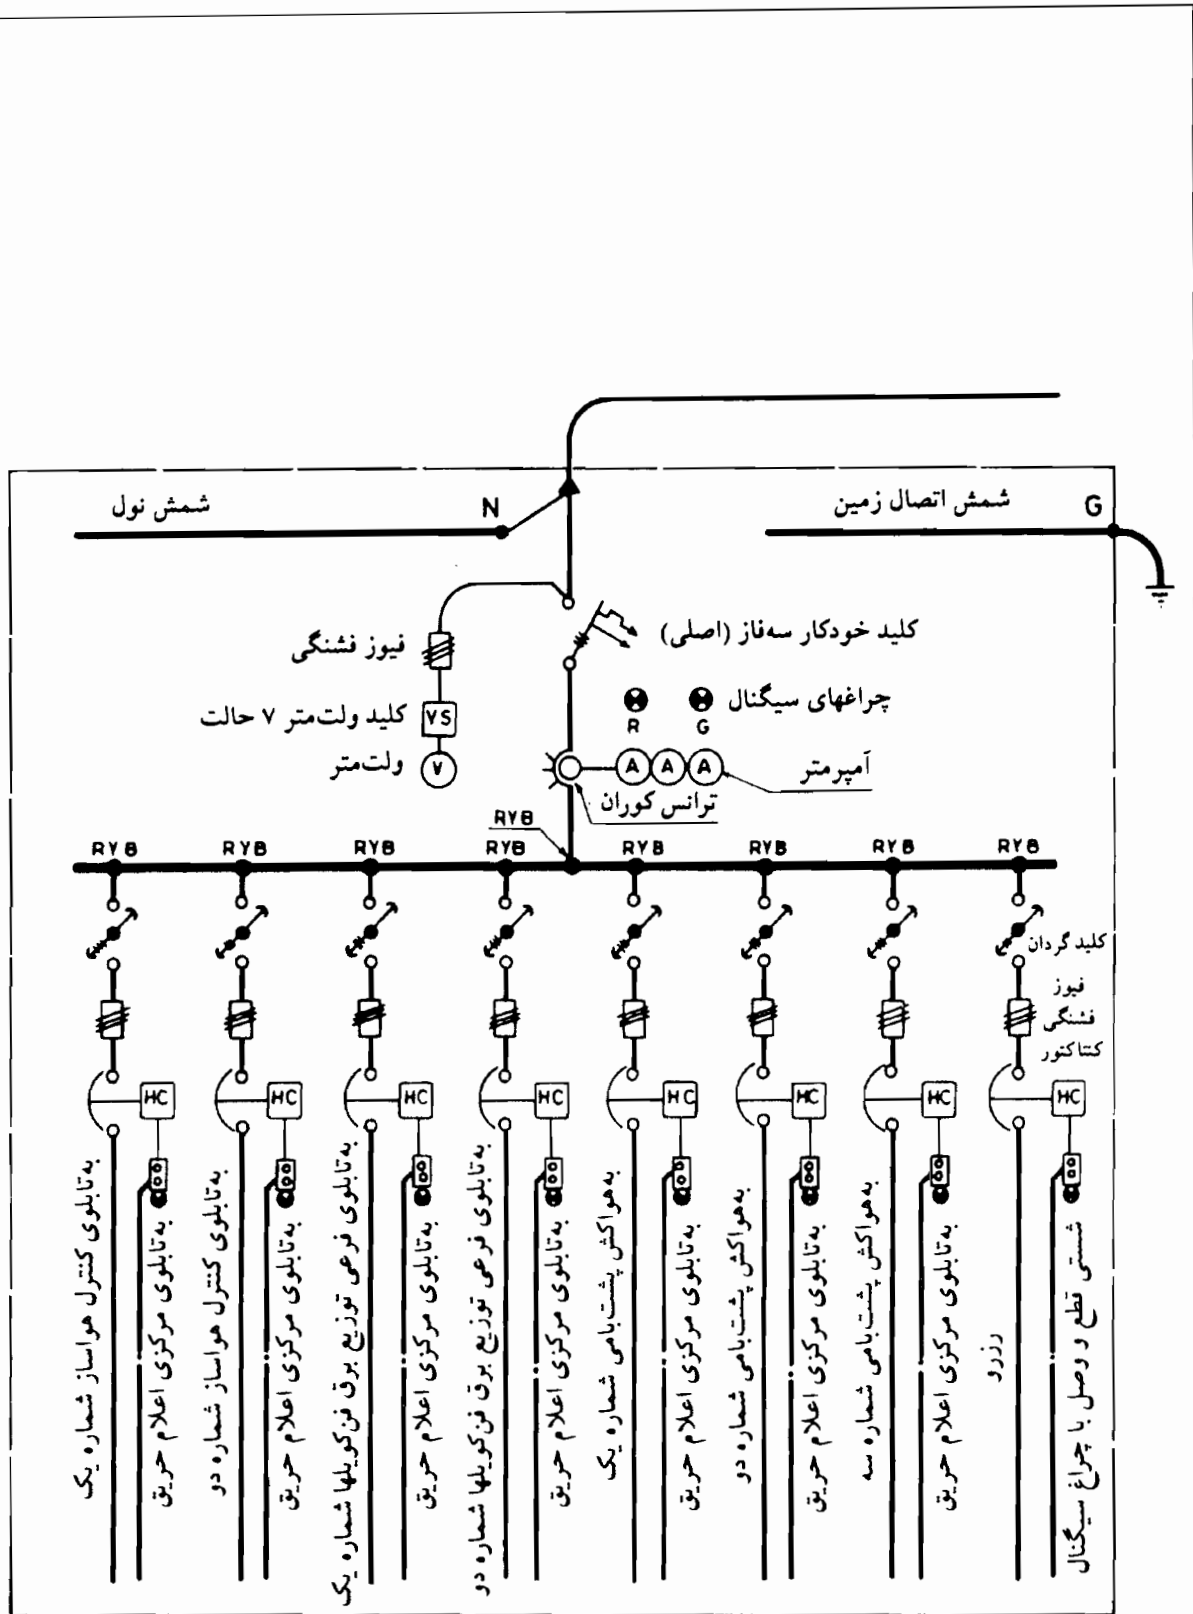 شمش نول
N
شمش اتصال زمین
G
کلید خودکار سه‌فاز (اصلی)
فیوز فشنگی
چراغهای سیگنال
R
G
VS
کلید ولت‌متر ۷ حالت
V
ولت‌متر
A
A
A
آمپرمتر
ترانس کوران
RYB
RYB
RYB
RYB
RYB
RYB
RYB
RYB
RYB
کلید گردان
فیوز
فشنگی
کنتاکتور
HC
HC
HC
HC
HC
HC
HC
HC
به‌تابلوی کنترل هواساز شماره یک
به‌تابلوی مرکزی اعلام حریق
به‌تابلوی کنترل هواساز شماره دو
به‌تابلوی مرکزی اعلام حریق
به‌تابلوی فرعی توزیع برق فن‌کویلها شماره یک
به‌تابلوی مرکزی اعلام حریق
به‌تابلوی فرعی توزیع برق فن‌کویلها شماره دو
به‌تابلوی مرکزی اعلام حریق
به‌هواکش پشت‌بامی شماره یک
به‌تابلوی مرکزی اعلام حریق
به‌هواکش پشت‌بامی شماره دو
به‌تابلوی مرکزی اعلام حریق
به‌هواکش پشت‌بامی شماره سه
به‌تابلوی مرکزی اعلام حریق
رزرو
شستی قطع و وصل با چراغ سیگنال